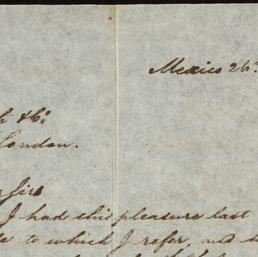 Mexico 26.
& Co:
London.
Sirs
I had this pleasure last
to which I refer, and